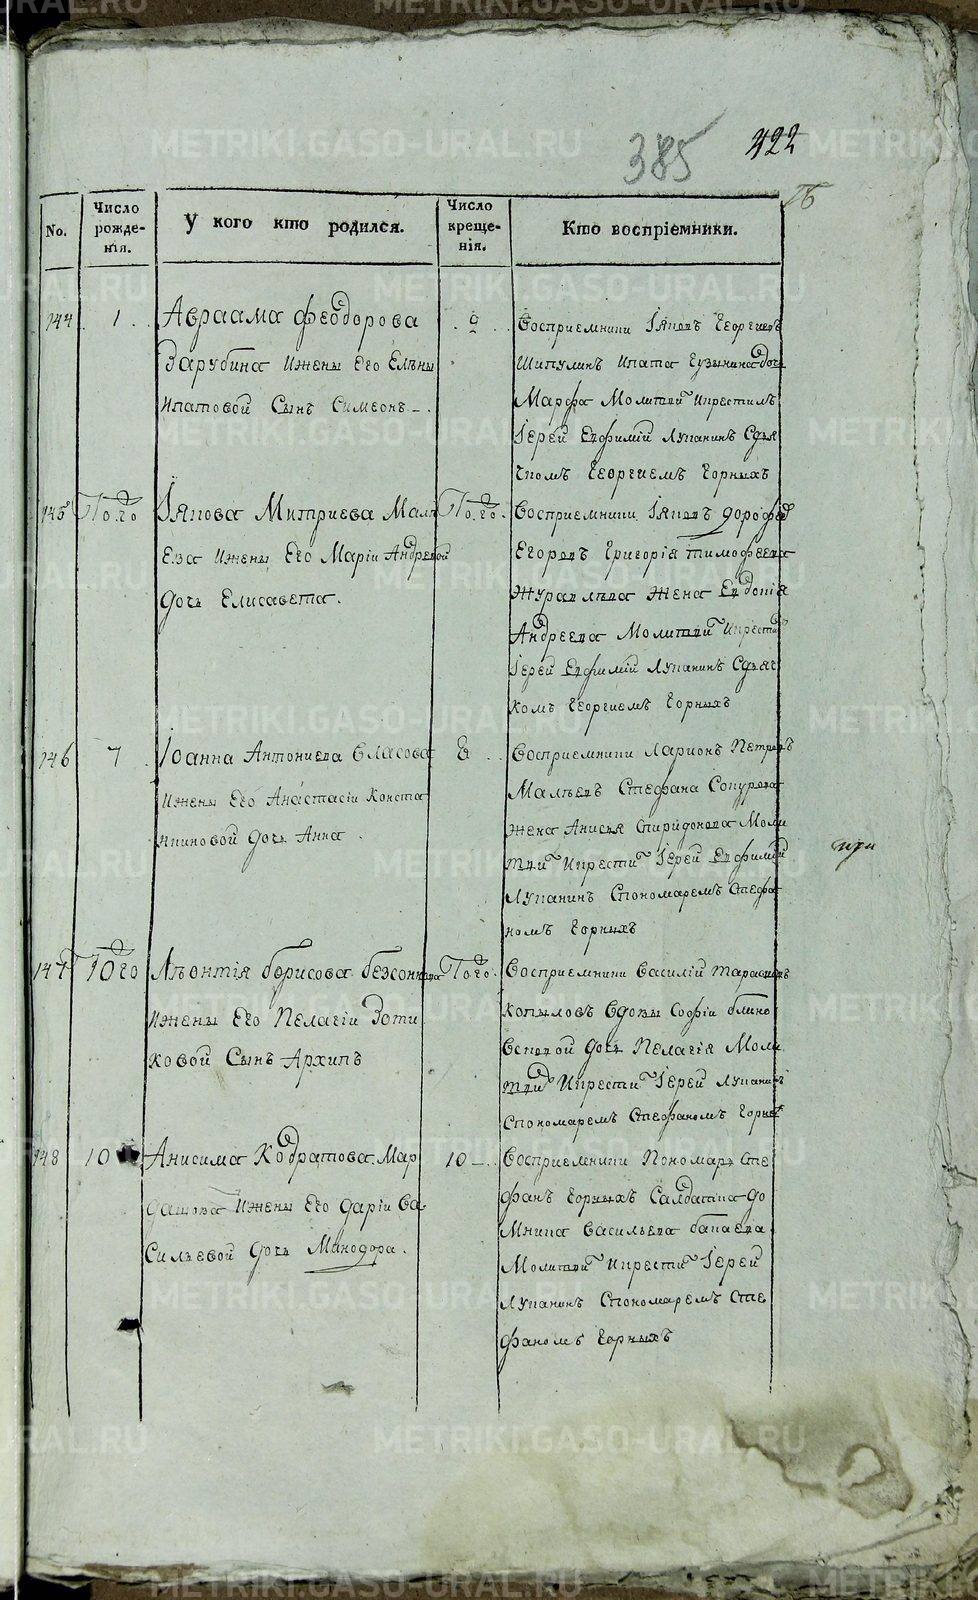 385 422
No.
Число рожде-нія.
У кого кто родился.
Число креще-нія.
Кто воспріемники.
144
1
Авраама Феодорова
Зарубина ижены Его Елены
Ипатовой Сынъ Симеонъ
9
Восприемники Іяковъ Георгиевъ
Шипулинъ Ипата Кузьмина дочь
Марфа Молитвой Икрестилъ
Іерей Евфимий Лупанинъ Сдья
чкомъ Георгиемъ Горныхъ
145
Того
Іякова Митриева
Ева ижены Его Маріи Андревой
дочь Елисавета.
Того
Восприемники Іяковъ Дорофей
Егоровъ Григорія Тимофеева
Журавлева Жена Евдокія
Андреева Молитвой Икрести
Іерей Евфимий Лупанинъ Сдьяч
комъ Георгиемъ Горныхъ
146
7
Іоанна Антониева Власова
Ижены Его Анастасіи Конста
нтиновой дочь Анна.
8
Восприемники Ларионъ Петровъ
Стефана
Жена Анисья Спиридонова Моли
твой Икрести Іерей Евфимий
Лупанинъ Спономаремъ Стефа
номъ Горныхъ
при
147
10го
Леонтія Борисова
Ижены Его Пелагіи Зоти
ковой Сынъ Архипъ
Того
Восприемники Василій
Копыловъ Вдовы Софіи
дочь Пелагія Моли
твой Икрести Іерей Лупанинъ
Спономаремъ Стефаномъ Горных
148
10
Анисима Кодратова Мар
дашова Ижены Его Даріи Ва
сильевой дочь Минодора.
10
Восприемники Пономарь Сте
фанъ Горныхъ Салдатка До
мника Васильева
Молитвой Икрести Іерей
Лупанинъ Спономаремъ Сте
фаномъ Горныхъ
METRIKI.GASO-URAL.RU